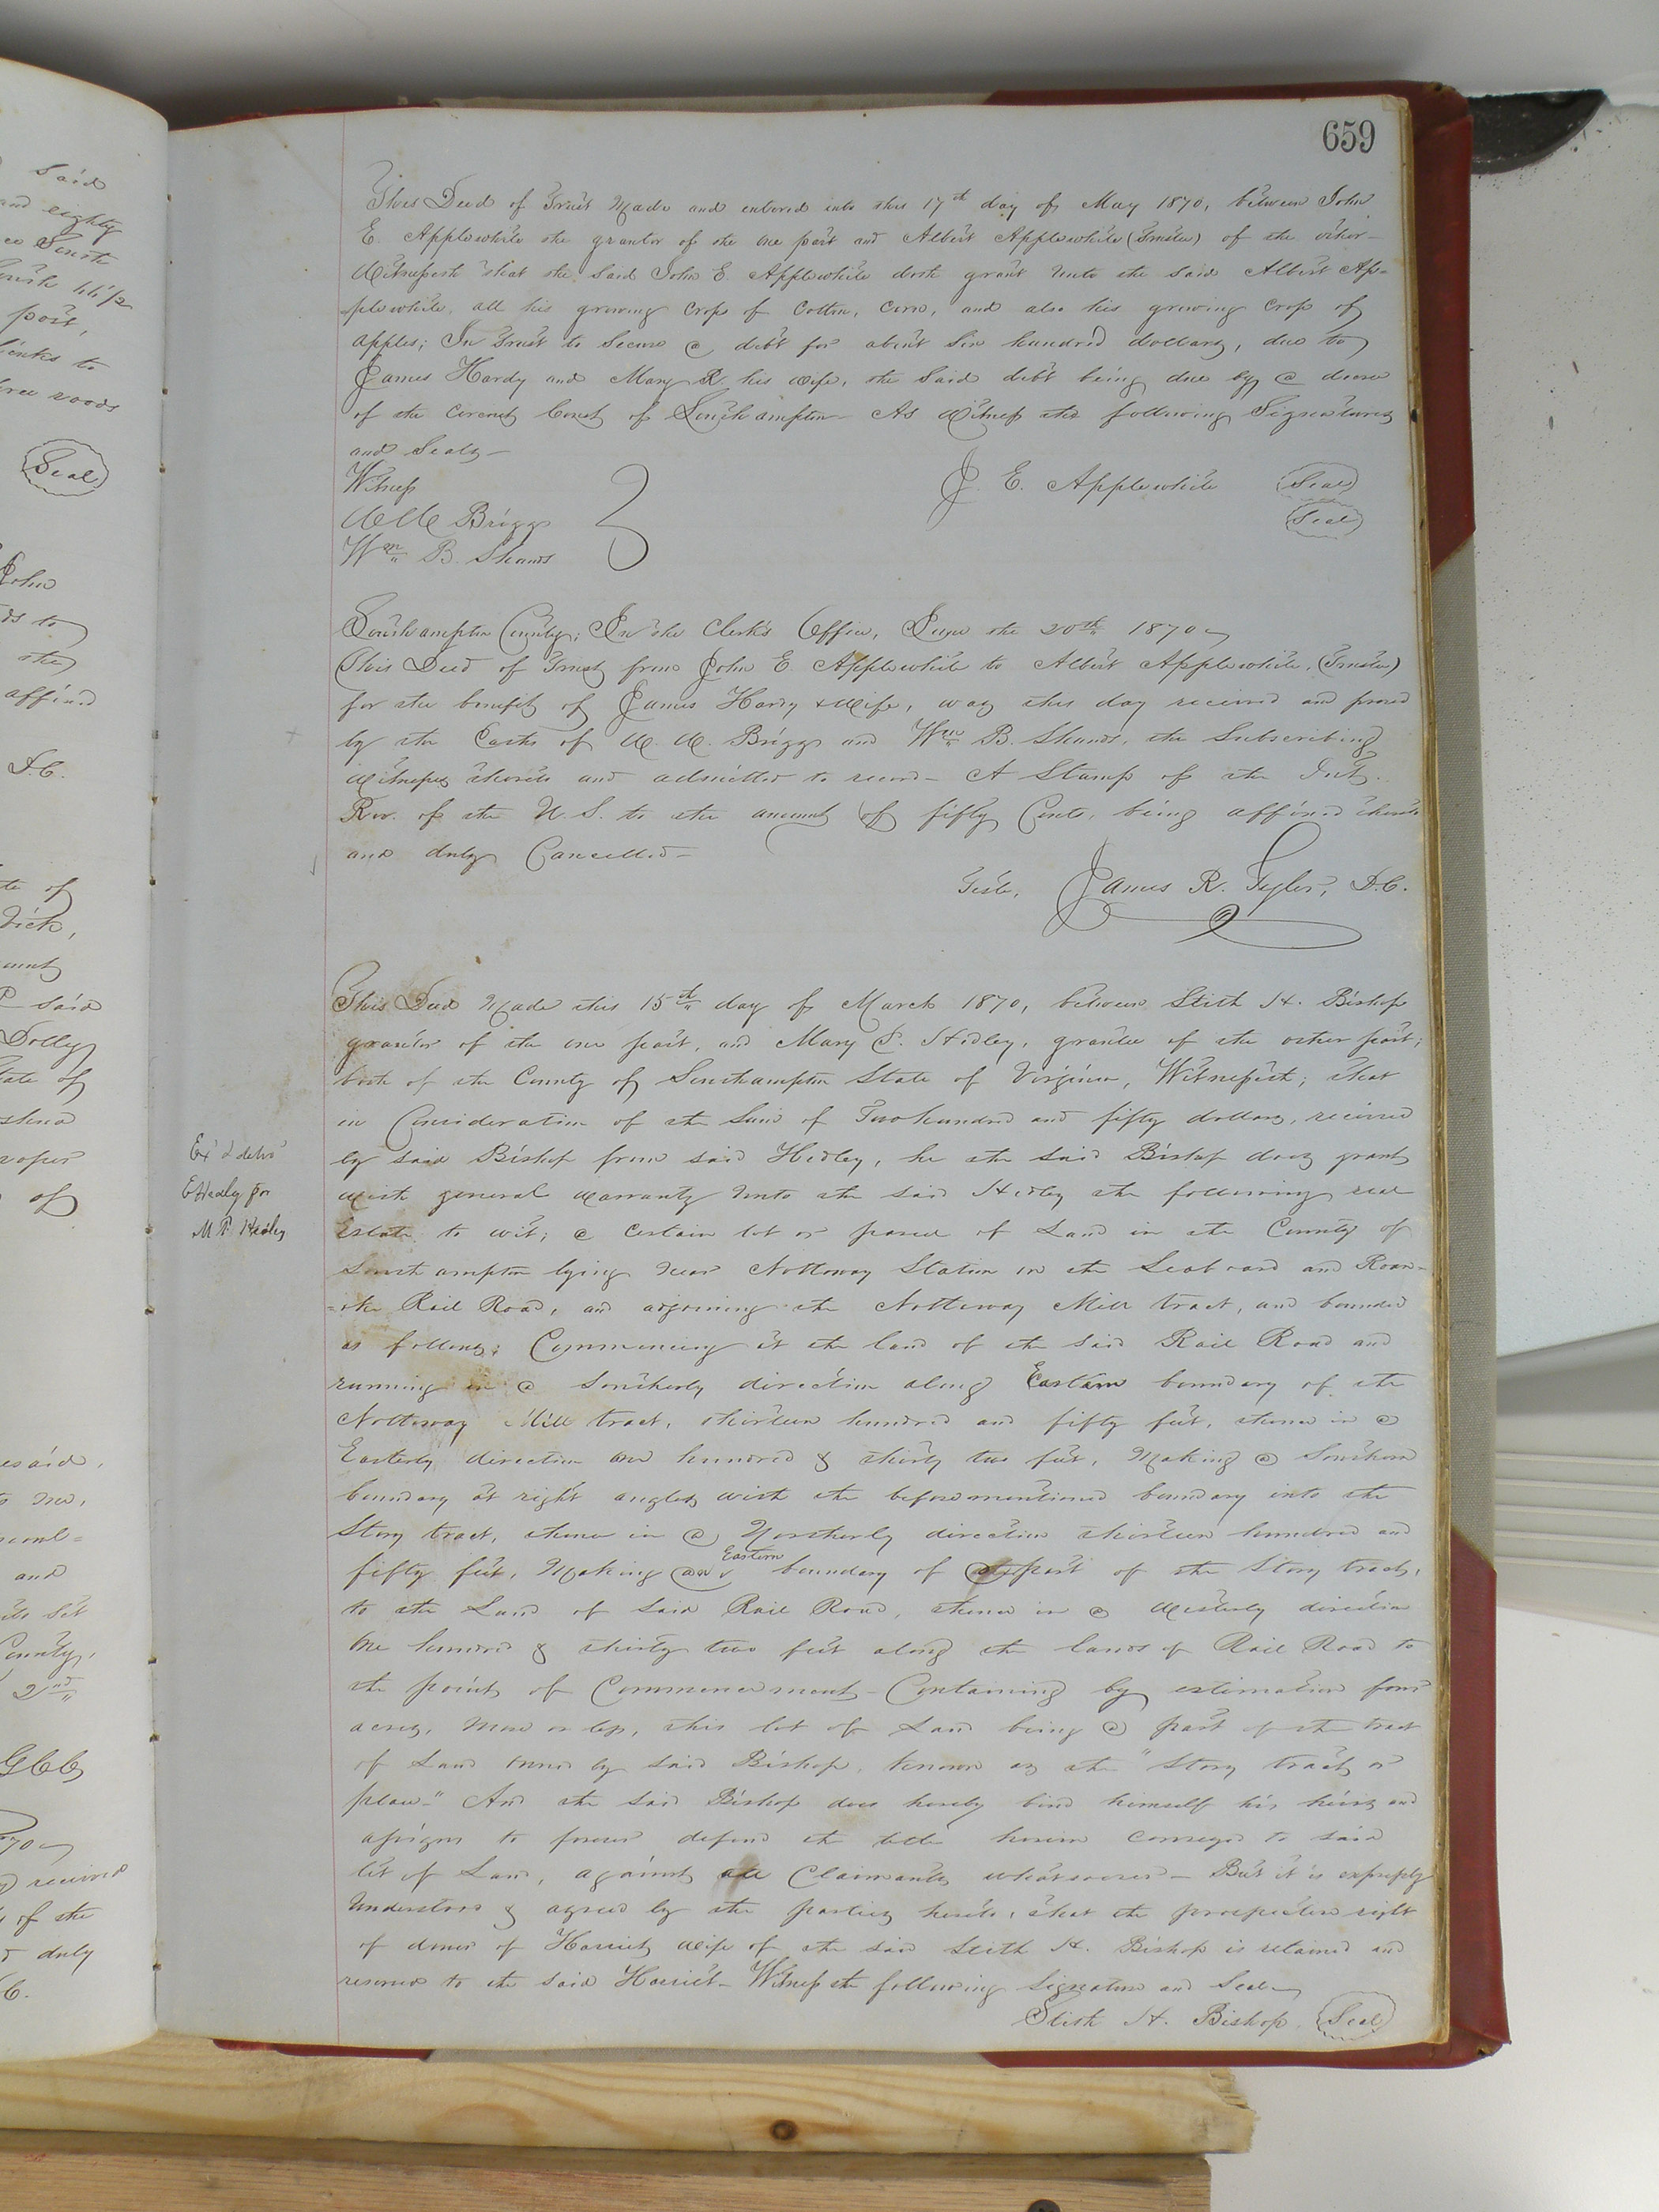 659
This Deed of Trust Made and entered into this 17th day of May 1870, between John
E. Applewhite the grantor of the one part and Albert Applewhite (Trustee) of the other –
Witnesseth that the said John E Applewhite doth grant unto the said Albert Ap=
plewhite, all his growing crop of Cotton, Corn, and also his growing crop of
apples; In Trust to Secure a debt for about Six hundred dollars, due to
James Hardy and Mary R. his wife, the said debt being due by a decree
of the Circuit Court of Southampton – As Witness the following Signatures
and Seals –
Witness
J. E. Applewhite Seal
W W Briggs Seal
Wm B. Shands
Southampton County; In the Clerk's Office, June the 20th 1870
This Deed of Trust from John E. Applewhite to Albert Applewhite, (Trustee)
for the benefit of James Hardy & Wife, was this day received and proved
by the Oaths of W. W. Briggs and Wm B. Shands, the Subscribing
Witnesses thereto and admitted to record – A Stamp of the Int.
Rev. of the U. S. to the amount of fifty Cents, being affixed thereto
and duly Cancelled –
Teste, James R. Tyler, D.C.
This Deed Made this 15th day of March 1870, between Stith H. Bishop
grantor of the one part, and Mary P. Hedley, grantee of the other part;
both of the County of Southampton State of Virginia, Witnesseth; that
in Consideration of the Sum of Two hundred and fifty dollars, received
by said Bishop from said Hedley, he the said Bishop does grant
with general warranty unto the said Hedley the following real
Estate to wit; a certain lot or parcel of Land in the County of
Southampton lying near Nottoway Station on the Seaboard and Roan=
=oke Rail Road, and adjoining the Nottoway Mill tract, and bounded
as follows; Commencing at the land of the said Rail Road and
running in a Southerly direction along Eastern boundary of the
Nottoway Mill tract, thirteen hundred and fifty feet, thence in a
Easterly direction one hundred & thirty two feet, Making a Southern
boundary at right angles with the beforementioned boundary into the
Story tract, thence in a Northerly direction thirteen hundred and
fifty feet, Making an Eastern boundary of part of the Story tract,
to the Land of said Rail Road, thence in a Westerly direction
One hundred & thirty two feet along the lands of Rail Road to
the point of Commencement – Containing by estimation four
acres, more or less, this lot of Land being a part of the tract
of Land owned by said Bishop, known as the "Story tract or
place" And the said Bishop does hereby bind himself his heirs and
assigns to forever defend the title herein conveyed to said
lot of Land, against all Claimants whatsoever – But it is expressly
Understood & agreed by the parties hereto, that the prospective right
of dower of Harriet wife of the said Stith H. Bishop is retained and
reserved to the said Harriet – Witness the following Signature and Seal
Stith H. Bishop Seal